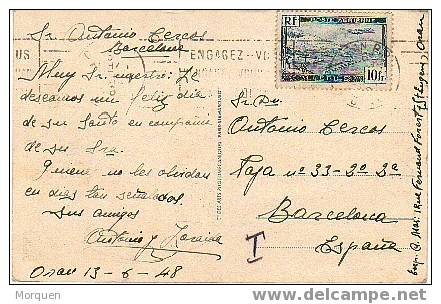 Sr. Antonio Cercos
Barcelona
Muy Sr. nuestro: Le
deseamos un feliz dia
de su Santo en compañia
de su Sra.
Quienes no les olvidan
en dias tan señalados
sus amigos
Antonio y
Oran 13-6-48
ENGAGEZ-VO
US
RF
POSTE AERIENNE
ALGERIE
10fr
Sr. Dn.
Antonio Cercos
Taja nº 33-2º 2ª
Barcelona
España
T
Rue Fernand Forest (St Eugène) Oran
Morquen
delcampe.net